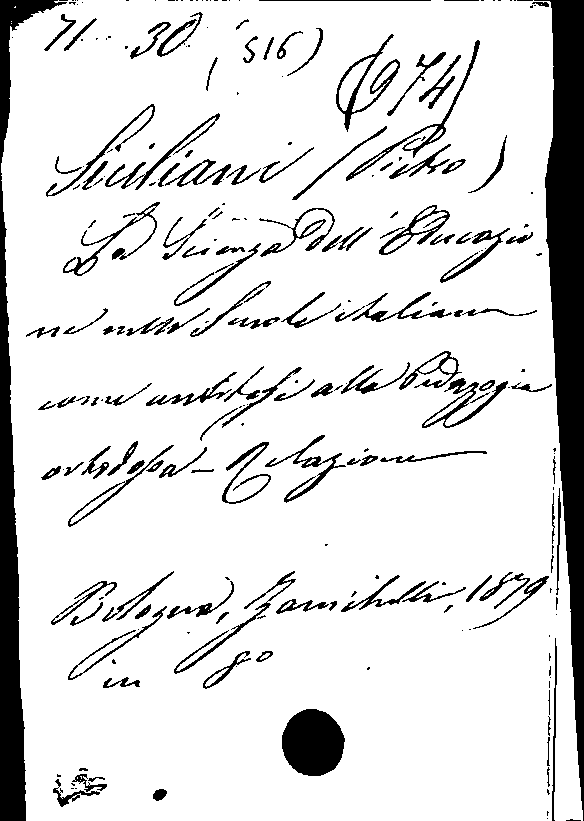 71 . 30 (S16)
(974)
Siciliani (Pietro)
La Scienza dell'Educazio-
ne nelle Scuole italiane
come antitesi alla Pedagogia
ortodossa - Relazione
Bologna, Zanichelli, 1879
in 8o